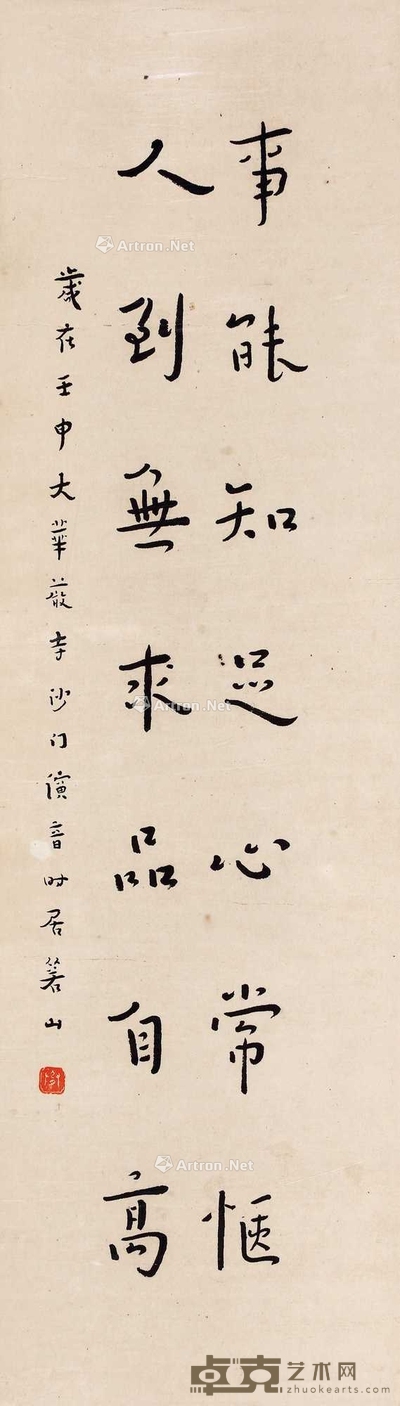 事能知足心常惬
人到無求品自高
歲在壬申大華嚴寺沙门演音时居箬山
Artron.Net
Artron.Net
Artron.Net
Artron.Net
卓克艺术网
zhuokearts.com